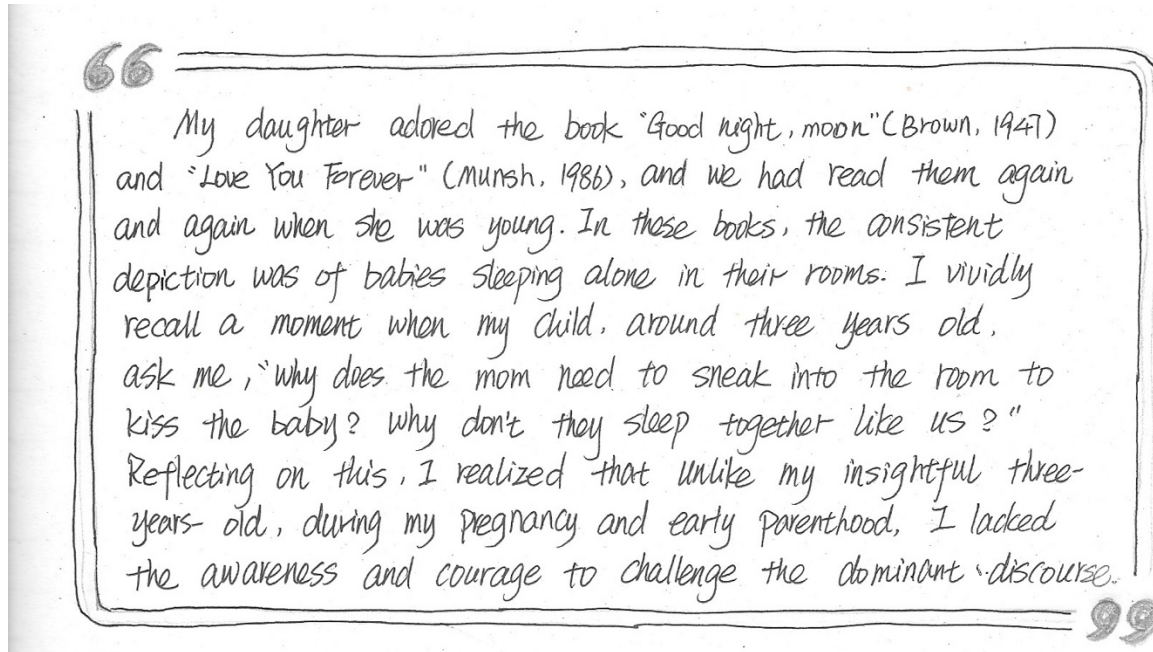 My daughter adored the book "Good night, moon" (Brown, 1947)
and "Love You Forever" (Munsh, 1986), and we had read them again
and again when she was young. In these books, the consistent
depiction was of babies sleeping alone in their rooms. I vividly
recall a moment when my child, around three years old,
ask me, "why does the mom need to sneak into the room to
kiss the baby? why don't they sleep together like us?"
Reflecting on this, I realized that unlike my insightful three-
years-old, during my pregnancy and early parenthood, I lacked
the awareness and courage to challenge the dominant discourse.